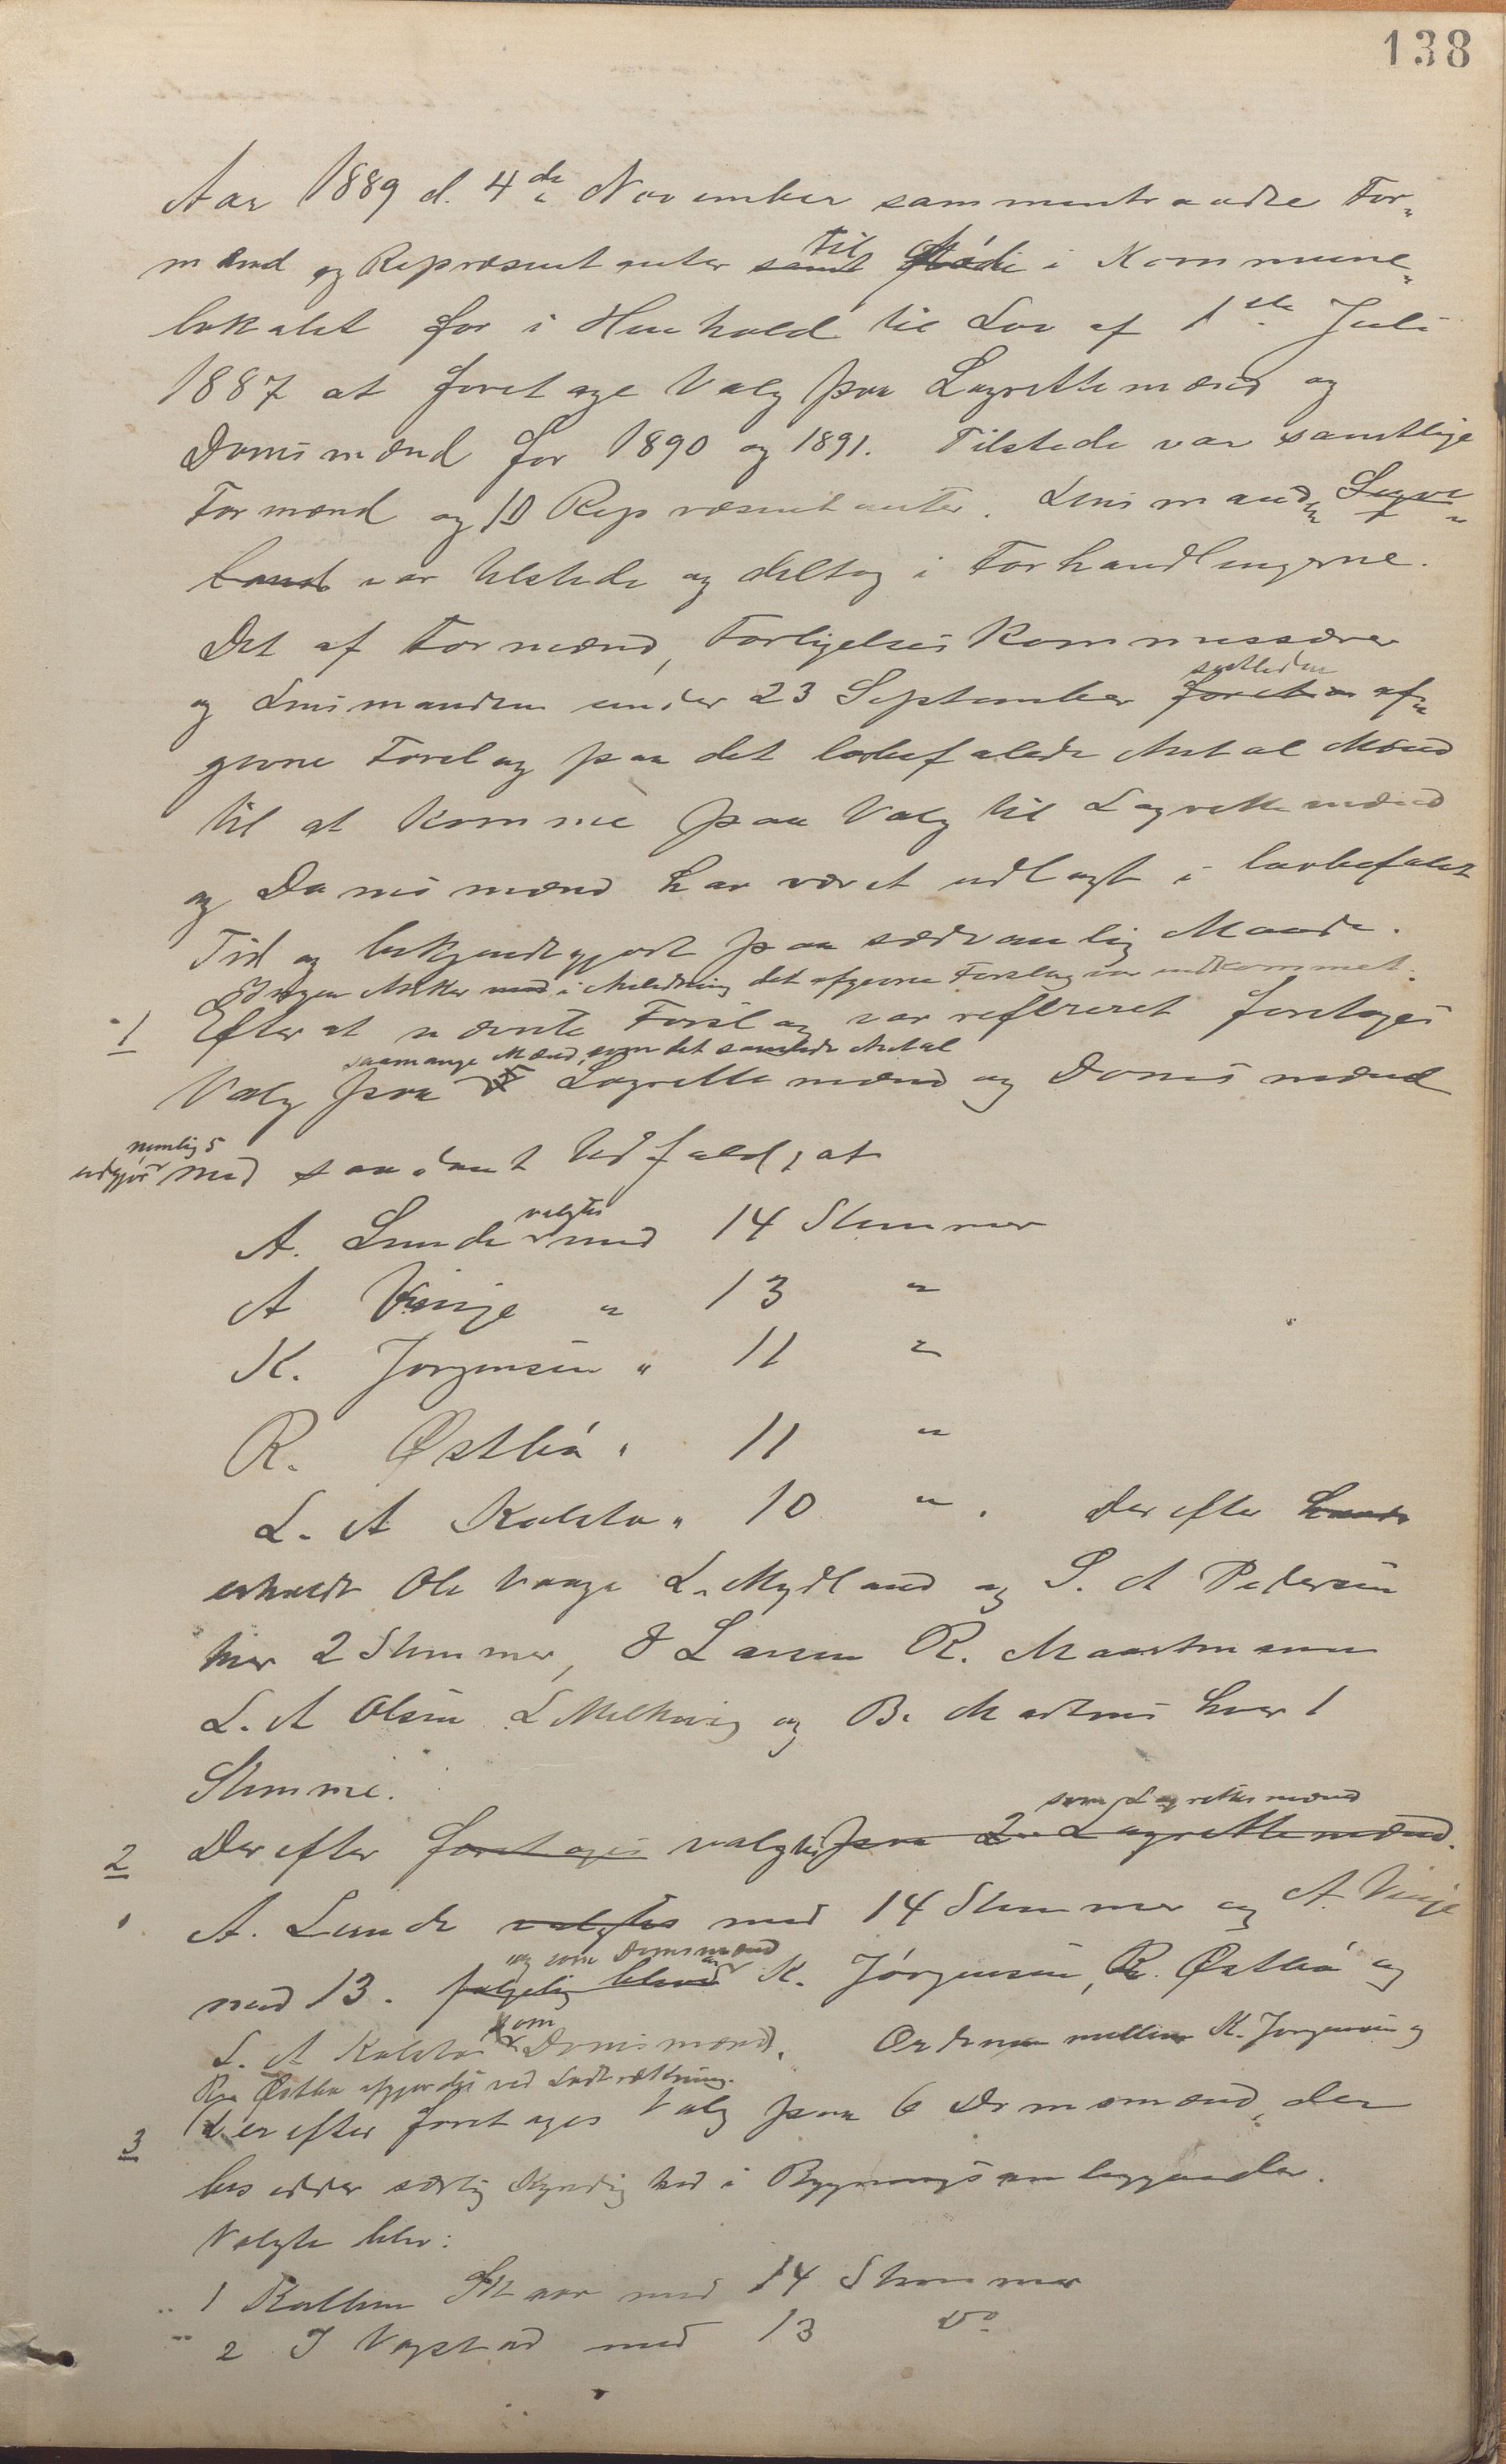 138
Aar 1889 d. 4de November sammentraadte For-
mænd og Repræsentanter samt til Møde i Kommune-
lokalet for i Henhold til Lov af 1ste Juli
1887 at foretage Valg paa Lagrettemænd og
Domsmænd for 1890 og 1891. Tilstede var samtlige
Formænd og 10 Repræsentanter. Lensmanden
var tilstede og deltog i Forhandlingerne.
Det af Formænd, Forligelseskommissærer
og Lensmanden under 23 September sidstleden af-
givne Forslag paa det lovbefalede Antal Mænd
til at komme paa Valg til Lagrettemænd
og Domsmænd har været udlagt i lovbefalet
Tid og bekjendtgjort paa sædvanlig Maade.
Ingen Anker i Anledning det afgivne Forslag var indkommet.
1 Efter at nævnte Forslag var refereret foretoges
saamange Mænd, som det samlede Antal
Valg paa Lagrettemænd og Domsmænd
nemlig 5
udgjør med saadant Udfald, at
A. Lunde valgtes med 14 Stemmer
A Vinje " 13 "
K. Jørgensen " 11 "
R. Østbø " 11 "
L. A Kolstø " 10 " . Derefter
erholdt Ole Vaage L. Mydland og S. A Pedersen
hver 2 Stemmer, O Larsen R. Maartmann
L. A Olsen L Melkevig og B. Mortens hver 1
Stemme.
som Lagrettemænd
2 Derefter foretages valgtes paa 2 Lagrettemænd.
A. Lunde valgtes med 14 Stemmer og A. Vinje
og som Domsmænd
med 13. følgelig blev K. Jørgensen, R. Østbø og
L. A Kolstø som Domsmænd. Ordenen mellem K. Jørgensen og
R. Østbø afgjordes ved Lodtrækning.
3 Derefter foretages Valg paa 6 Domsmænd, der
besidder særlig Kyndighed i Bygningsanliggender.
Valgte blev:
1 Kolben Skaar med 14 Stemmer
2 I Vagstad med 13 Do